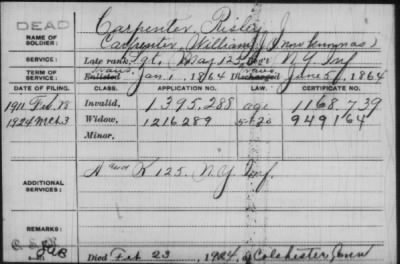 DEAD
NAME OF SOLDIER: Carpenter, Risley J.
Carpenter, William J. (now known as)
SERVICE: Late rank, Pvt. Hdq. 125 N.Y. Inf
TERM OF SERVICE: Enlisted Jan. 1, 1864 Discharged June 5, 1864
DATE OF FILING. CLASS. APPLICATION NO. LAW. CERTIFICATE NO.
1911 Feb. 18 Invalid, 1,395,288 age 1168,739
1924 Mch 3 Widow, 1216289 949164
Minor,
ADDITIONAL SERVICES: A and K 125. N.Y. Inf.
REMARKS:
Died Feb. 23, 1924, at Colchester, Conn